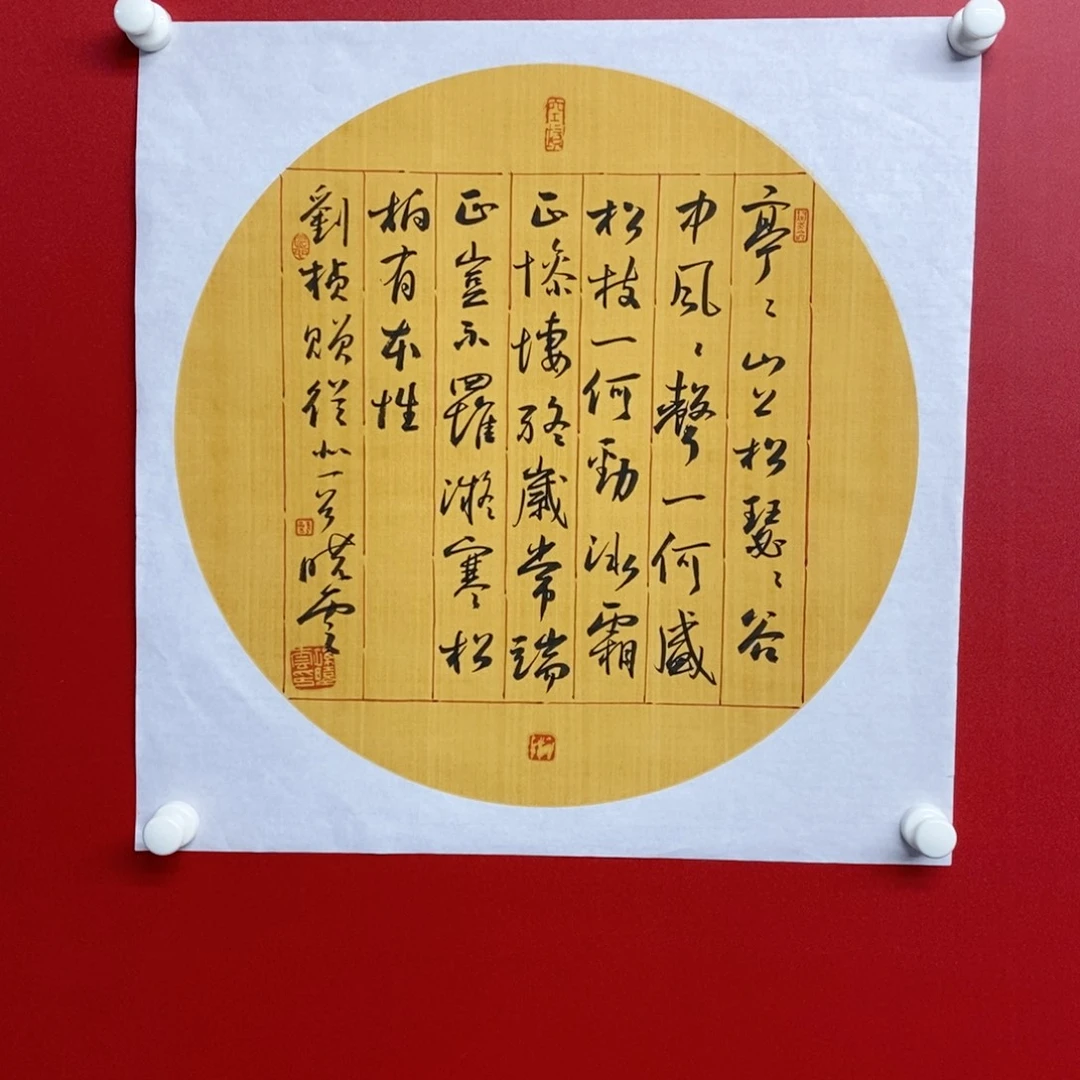 亭〻山上松瑟〻谷
中風〻聲一何盛
松枝一何勁冰霜
正慘悽終歲常端
正豈不罹凝寒松
柏有本性
劉楨贈從曉雲